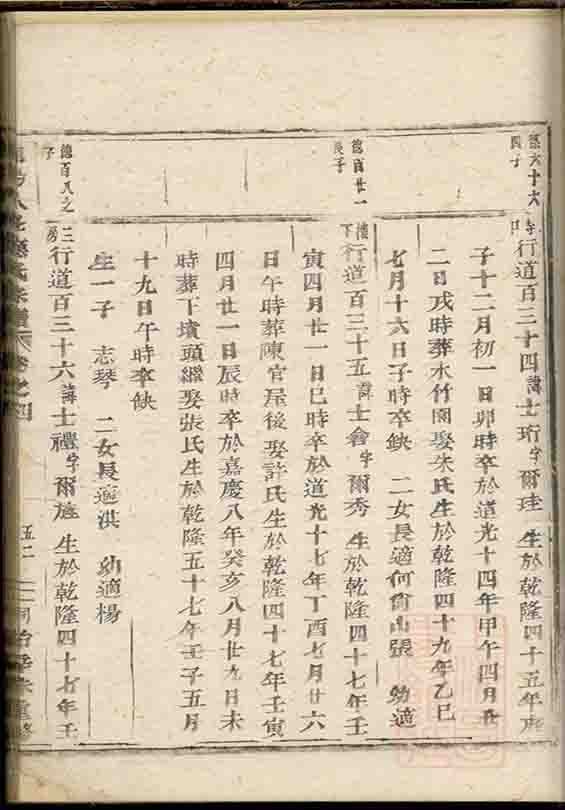 孫六十六
四子
行道百三十四諱士珩字爾珪 生於乾隆四十五年庚
子十二月初一日卯時卒於道光十四年甲午四月廿
二日戌時葬水竹園娶朱氏生於乾隆四十九年乙巳
七月十六日子時卒缺 二女長適何 山張 幼適
德百廿一
長子
樓下行道百三十五諱士會字爾秀 生於乾隆四十七年壬
寅四月廿一日巳時卒於道光十七年丁酉七月廿六
日午時葬陳官屋後娶許氏生於乾隆四十七年壬寅
四月廿一日辰時卒於嘉慶八年癸亥八月廿九日未
時葬下墳頭繼娶張氏生於乾隆五十七年壬子五月
十九日午時卒缺
生一子 志琴 二女長適洪 幼適楊
德百八之
子
三房行道百三十六諱士禮字爾 生於乾隆四十七年壬
氏宗譜 卷之四 五二 同治辛未重修